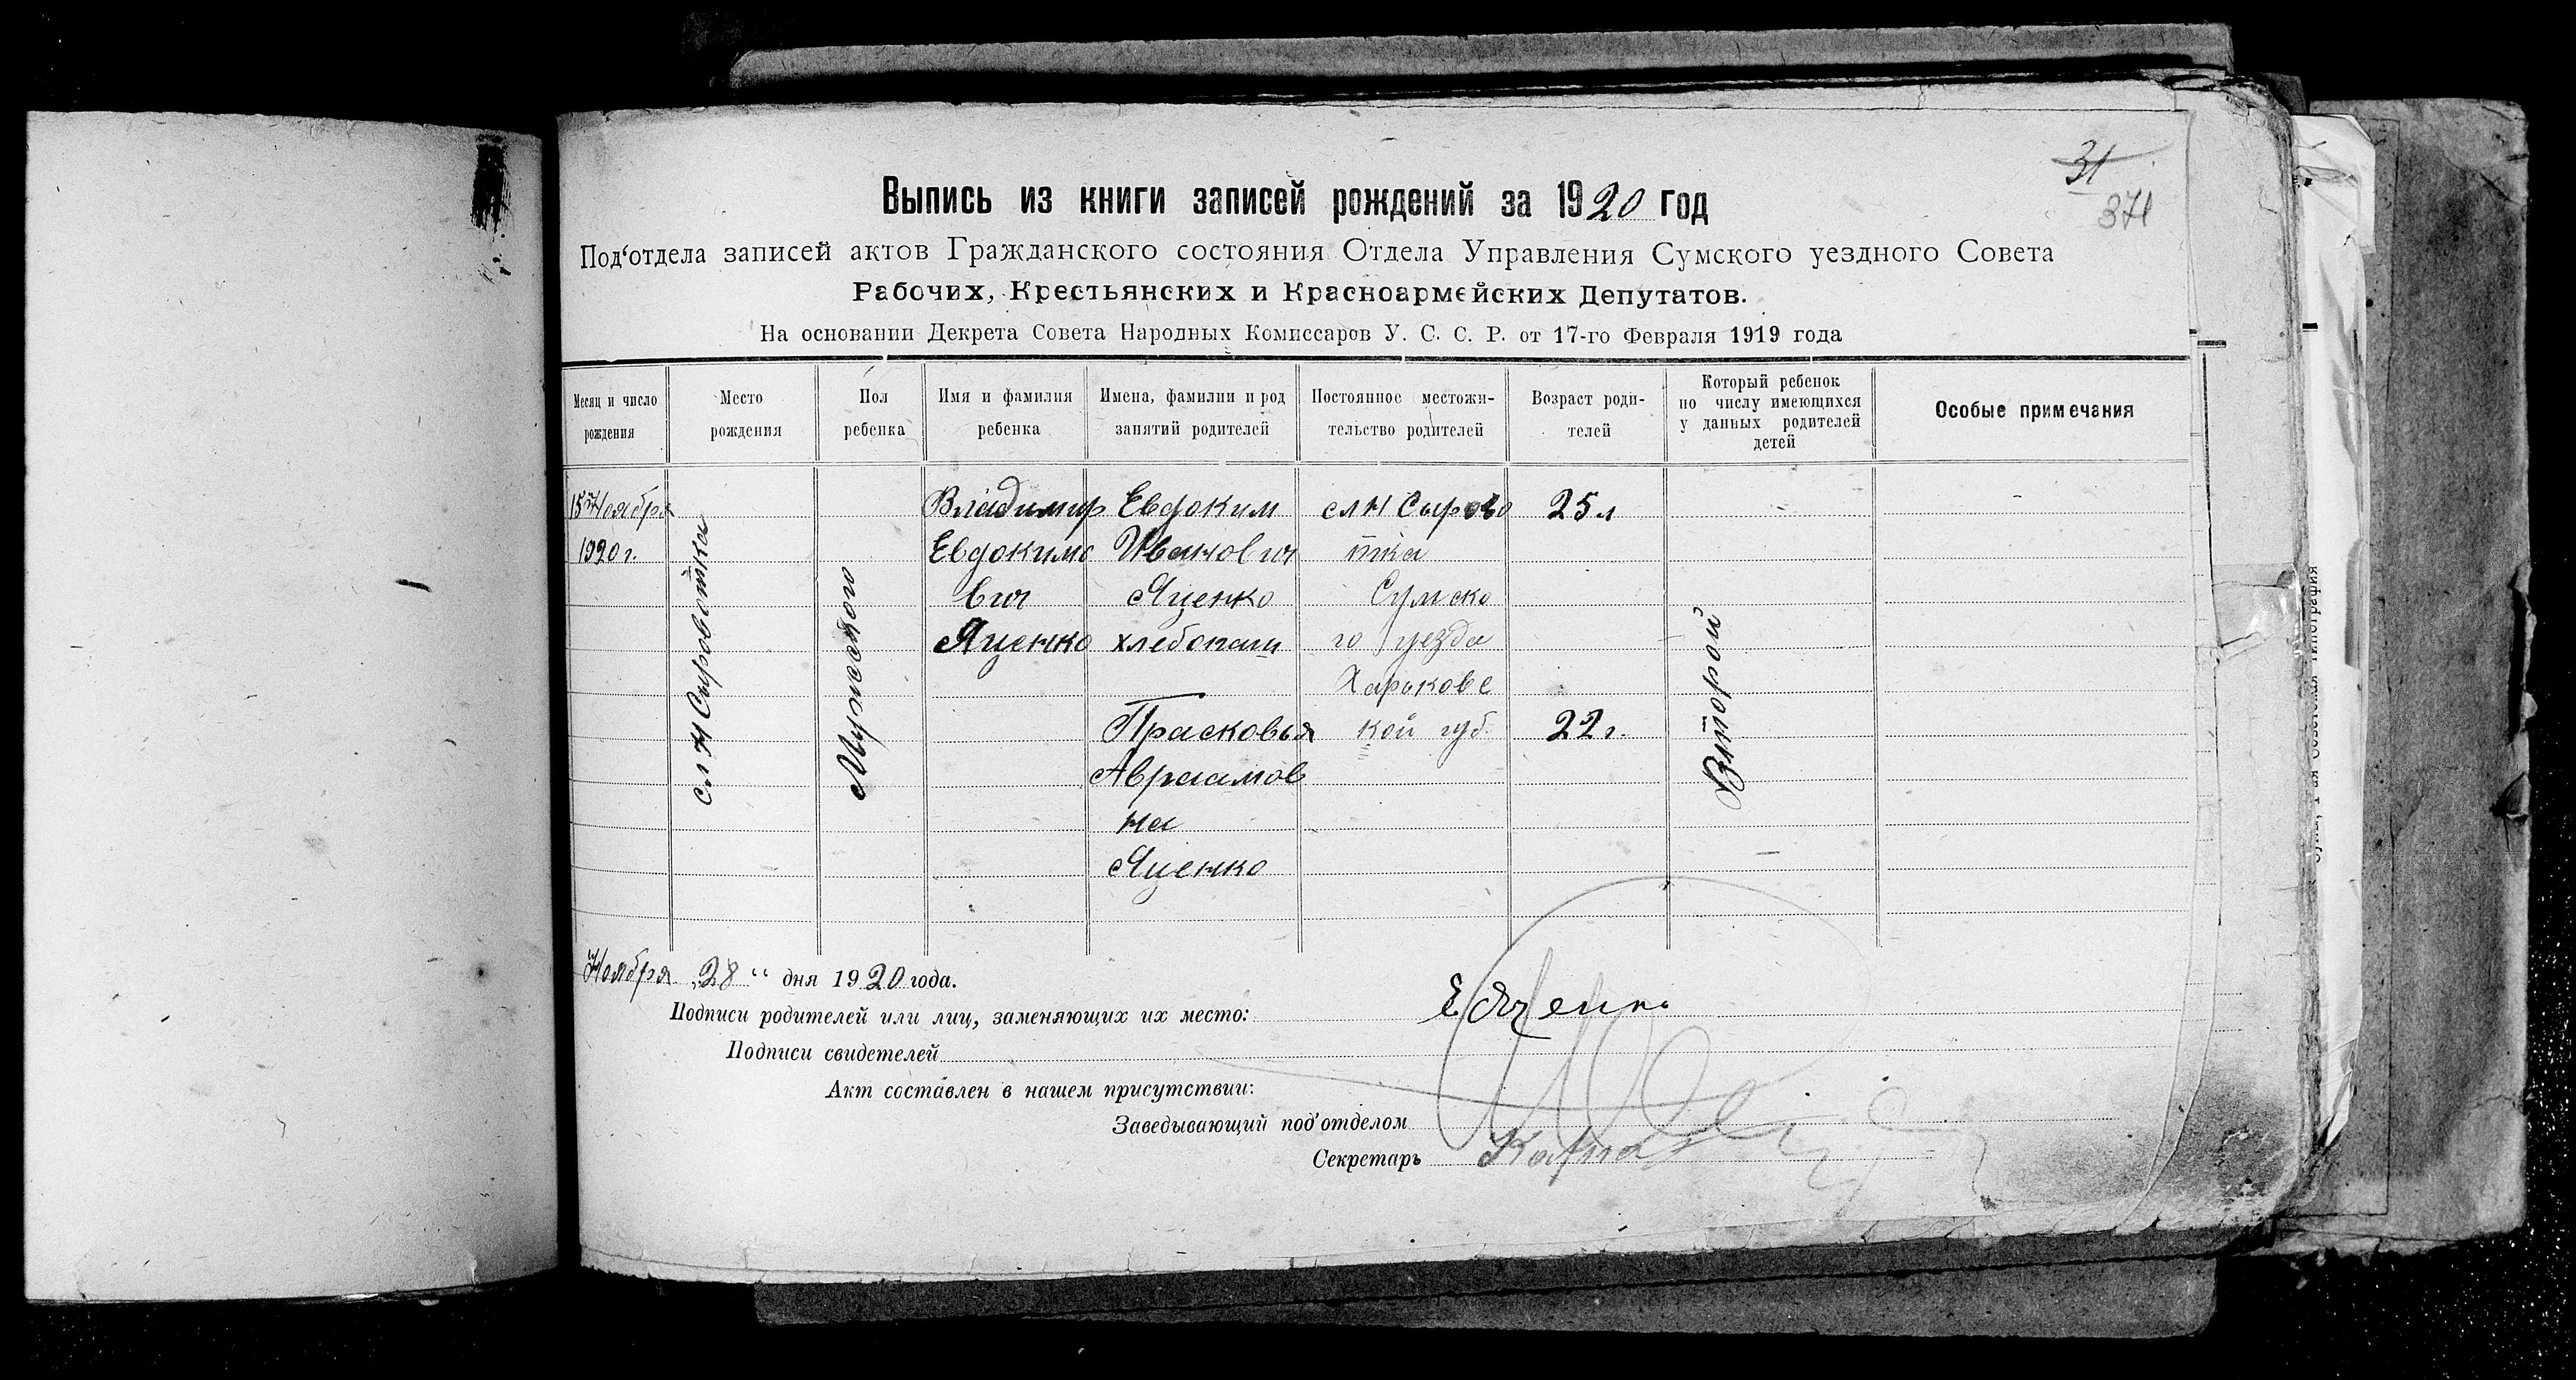 31
371
Выпись из книги записей рождений за 1920 год
Под‘отдела записей актов Гражданского состояния Отдела Управления Сумского уездного Совета
Рабочих, Крестьянских и Красноармейских Депутатов.
На основании Декрета Совета Народных Комиссаров У. С. С. Р. от 17-го Февраля 1919 года
Месяц и число
рождения
Место
рождения
Пол
ребенка
Имя и фамилия
ребенка
Имена, фамилии и род
занятий родителей
Постоянное местожи-
тельство родителей
Возраст роди-
телей
Который ребенок
по числу имеющихся
у данных родителей
детей
Особые примечания
15 Ноября
1920 г.
сл Н Сыроватка
Мужеского
Владимир
Евдокимо
вич
Яценко
Евдоким
Иванович
Яценко
хлебопаш
Прасковья
Авраамов
на
Яценко
сл Н Сырова
тка
Сумско
го уезда
Харьковс
кой губ.
25 л
22 г.
Второй
Ноября „28“ дня 1920 года.
Подписи родителей или лиц, заменяющих их место: Е Яценко
Подписи свидетелей
Акт составлен в нашем присутствии:
Заведывающий под‘отделом
Секретарь